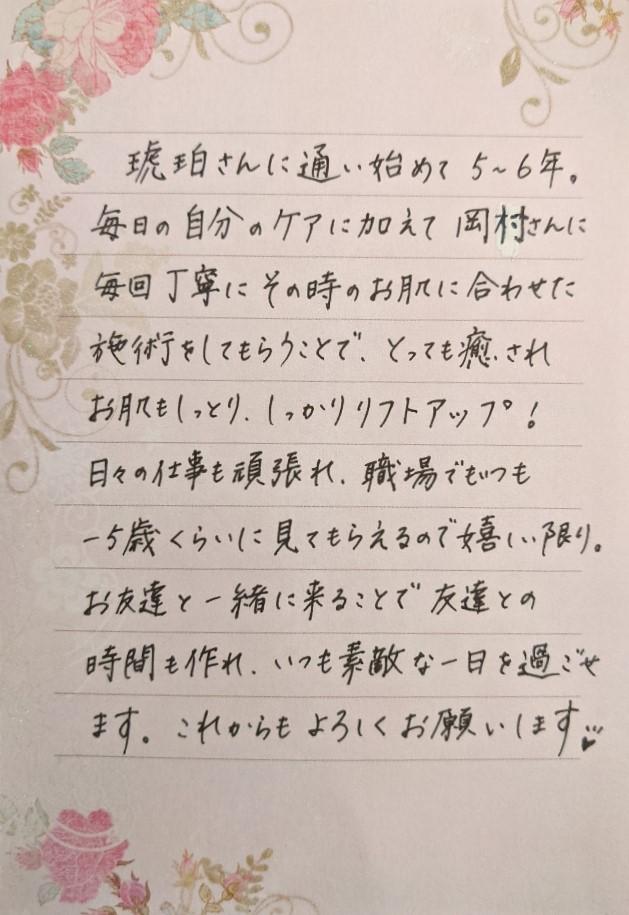 琥珀さんに通い始めて 5~6年。
毎日の自分のケアに加えて 岡村さんに
毎回丁寧にその時のお肌に合わせた
施術をしてもらうことで、とっても癒され
お肌もしっとり、しっかりリフトアップ!
日々の仕事も頑張れ、職場でもいつも
-5歳くらいに見てもらえるので嬉しい限り。
お友達と一緒に来ることで友達との
時間も作れ、いつも素敵な一日を過ごせ
ます。これからもよろしくお願いします